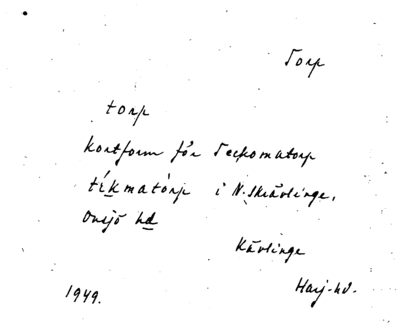 Torp
torp
kortform för Teckomatorp
tíkmatòrp i N. Skrävlinge,
Onsjö hd
Kävlinge
1949.
Harj. hd.